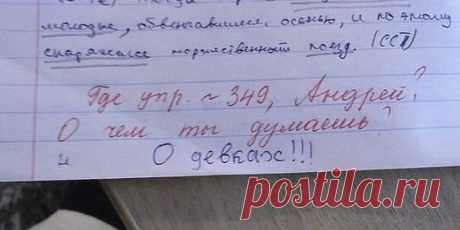 молодые, обвенчавшиеся осенью, и поэтому
снаряжался торжественный поезд. (ССП)
Где упр. ~ 349, Андрей?
О чем ты думаешь?
О девках!!!
postila.ru